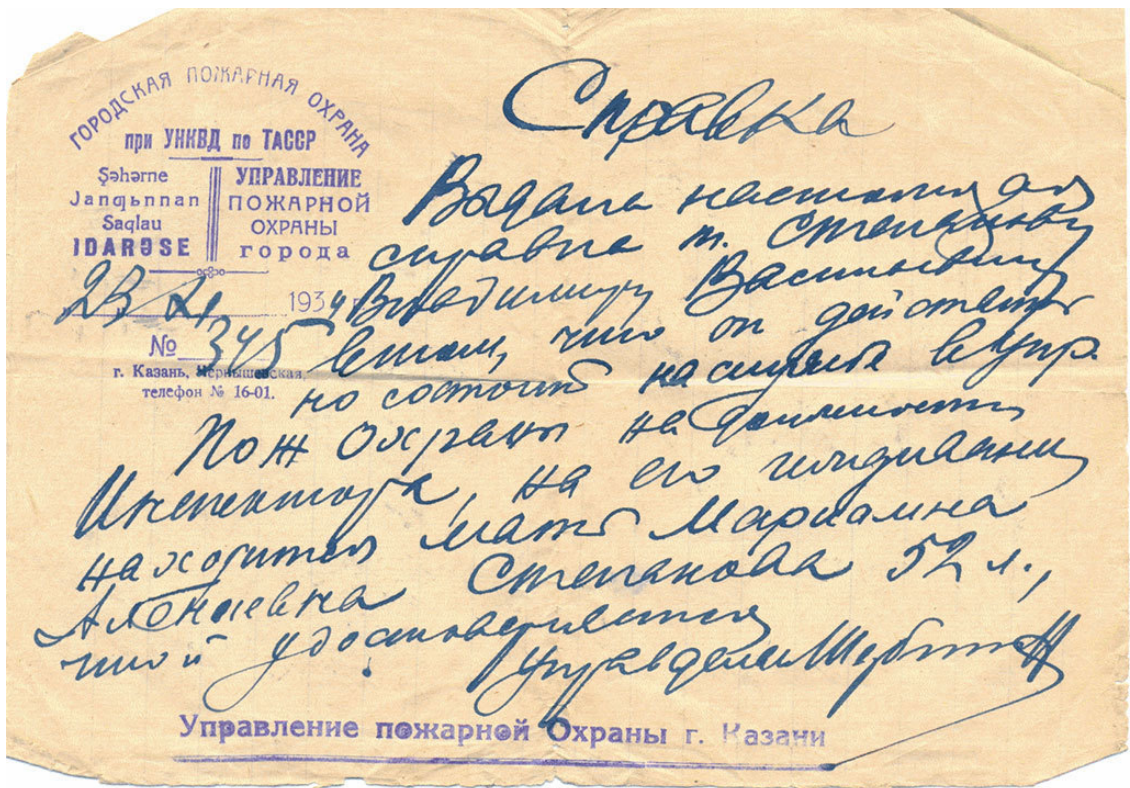 ГОРОДСКАЯ ПОЖАРНАЯ ОХРАНА
при УНКВД по ТАССР
Şəhərne
Janƣьnnan
Saqlau
IDARƏSE
УПРАВЛЕНИЕ
ПОЖАРНОЙ
ОХРАНЫ
города
23/XI 1934 г.
№ 345
г. Казань, Чернышевская,
телефон № 16-01.
Справка
Выдана настоящая
справка т. Степанову
Владимиру Васильевичу
в том, что он действитель
но состоит на службе в Упр.
Пож Охраны на должности
Инспектора, на его иждивении
находится мать Марианна
Степанова 52 л.,
удостоверяется
Управделами
Управление пожарной Охраны г. Казани